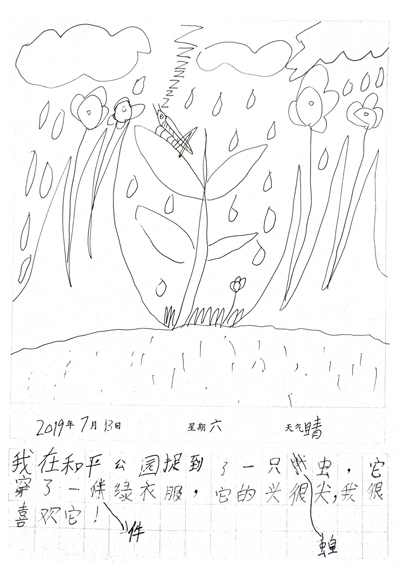 2019年7月13日 星期六 天气晴
我在和平公园捉到了一只虫，它
穿了一绿衣服，它的头很尖，我很
喜欢它！
件 蝗